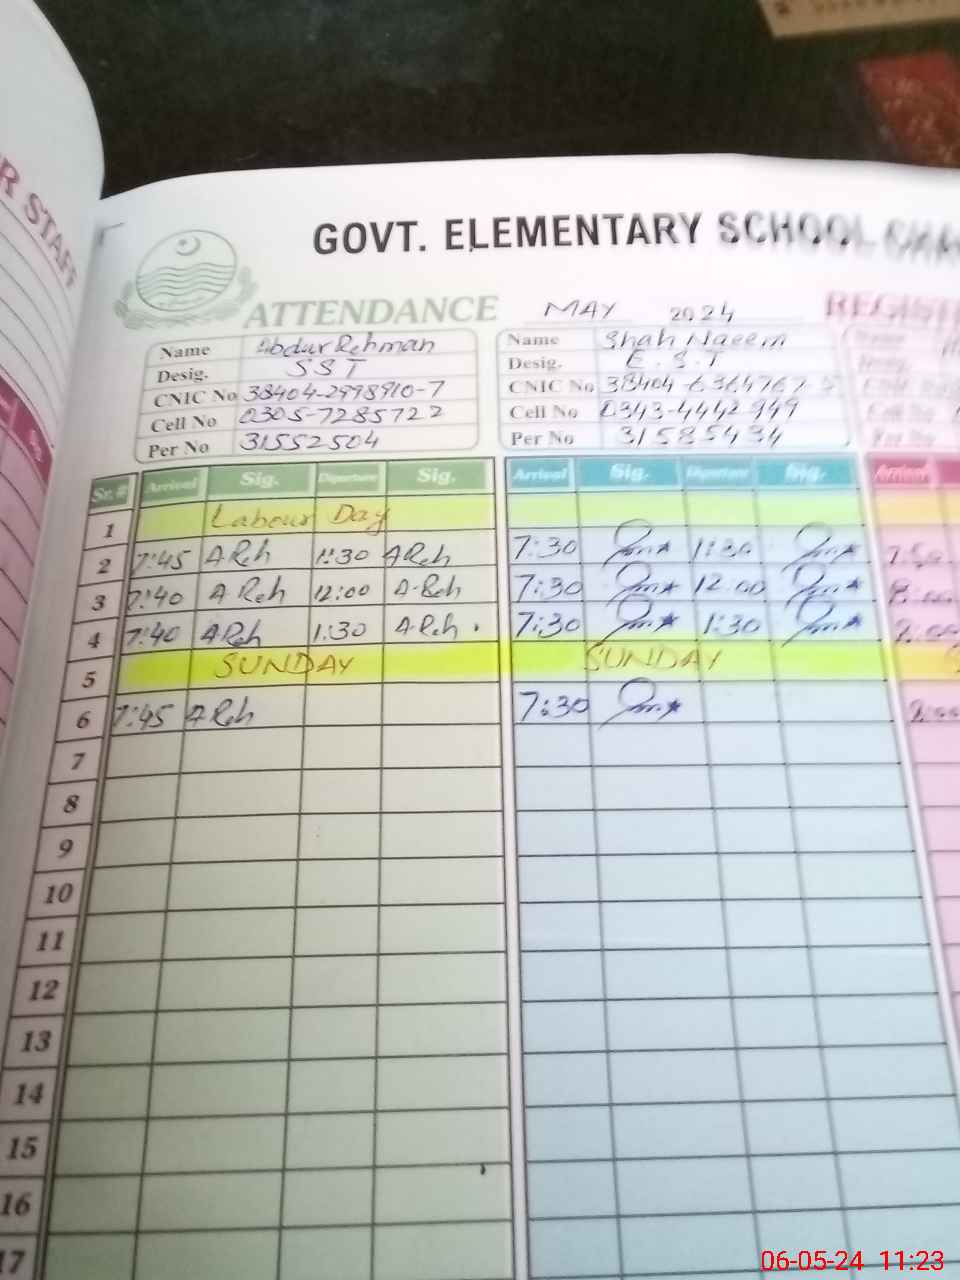 R STAFF
GOVT. ELEMENTARY SCHOOL
ATTENDANCE MAY 2024 REGIST
Name Abdur Rehman Name Shah Naeem
Desig. SST Desig. E.S.T
CNIC No 38404-2998910-7 CNIC No 38404-6364767-
Cell No 0305-7285722 Cell No 0343-4442949
Per No 31552504 Per No 31585434
Sr.# Arrival Sig. Diparture Sig. Arrival Sig. Diparture Sig. Arrival
1 Labour Day
2 7:45 A Reh 1:30 A Reh 7:30 1:30 7:50
3 7:40 A Reh 12:00 A Reh 7:30 12:00 8:00
4 7:40 A Reh 1:30 A Reh 7:30 1:30
5 SUNDAY SUNDAY
6 7:45 A Reh 7:30
7
8
9
10
11
12
13
14
15
16
17
06-05-24 11:23